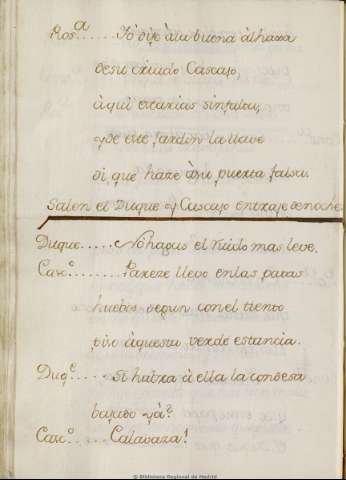 Ros.ª...... Yo dije à tu buena àlhaxa
de su criado Cascajo,
à qui estarias sin falta;
y de este jardin la llave
di que haze à su puerta falsa.
Salen el Duque y Cascajo en traje de noche
Duque..... No hagas el ruido mas leve.
Casc.º........ Pareze llevo en las patas
huebos segun con el tiento
piso àquesta verde estancia.
Duq.e..... Si habra à ella la condesa
bajado ya?
Casc.º..... Calabaza!
© Biblioteca Regional de Madrid